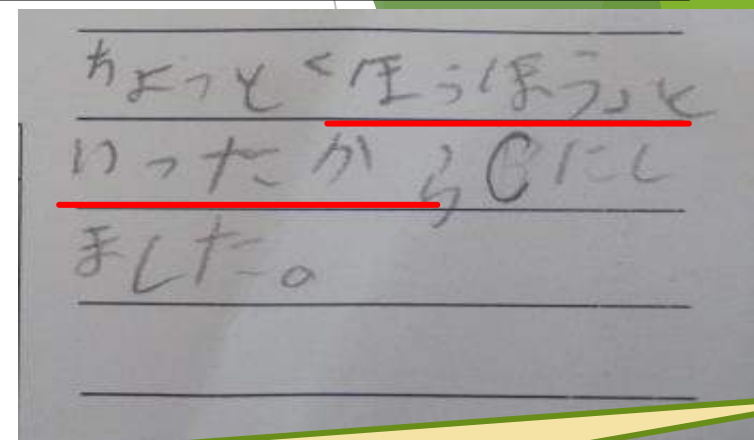 ちょっと「ほうほう」と
いったからCにし
ました。